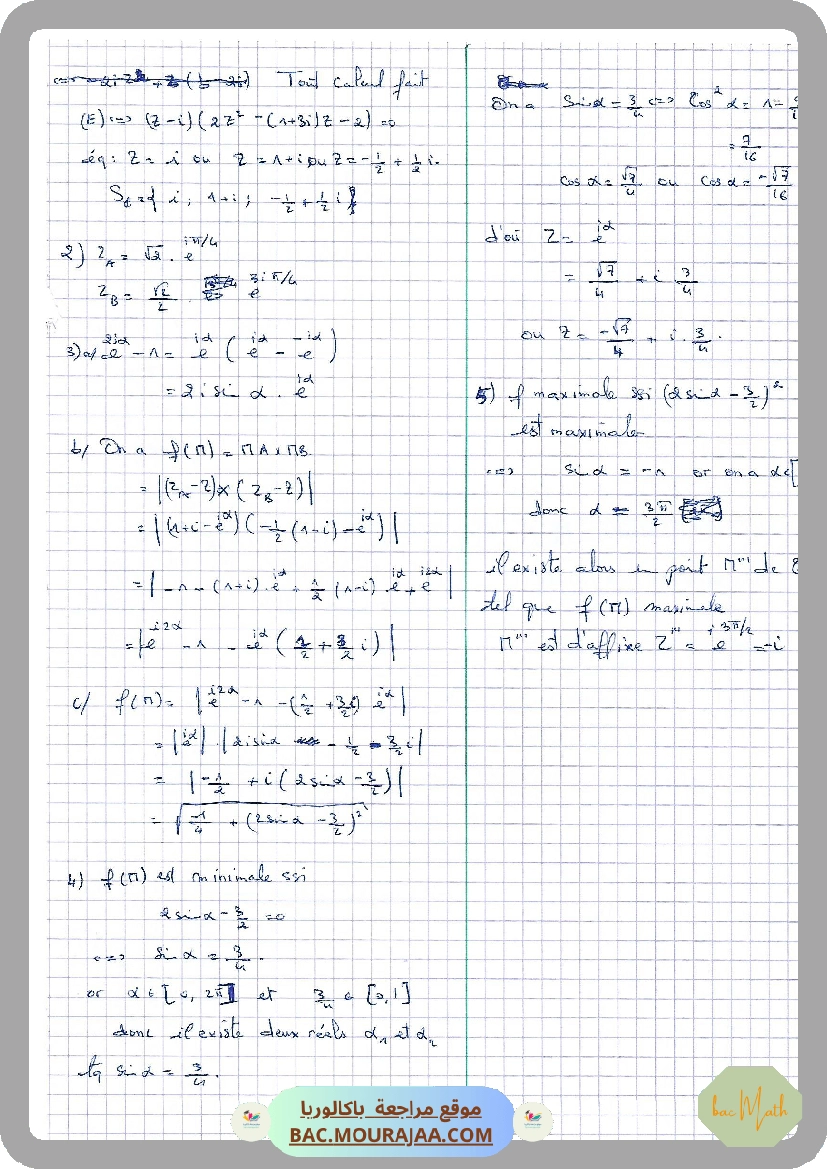 Tout calcul fait
(E) <=> (Z-i)(2Z² -(1+3i)Z-2)=0
éq: Z = i ou Z = 1+i ou Z=-1/2 + 1/2 i.
i; 1+i; -1/2 + 1/2 i}
2) Z_A = √2 . e^{iπ/4}
Z_B = √2/2 e^{3iπ/4}
3) a/ e^{2iα} - 1 = e^{iα} ( e^{iα} - e^{-iα} )
= 2i sin α . e^{iα}
b/ On a f(M) = MA x MB
= |(Z_A-Z)x(Z_B-Z)|
= |(1+i-e^{iα})(-1/2(1-i)-e^{iα})|
= |-1-(1+i).e^{iα} + 1/2 (1-i) e^{iα} + e^{i2α}|
= |e^{i2α} - 1 - e^{iα} (1/2 + 3/2 i)|
c/ f(M) = |e^{i2α} - 1 - (1/2 + 3/2 i) e^{iα}|
= |e^{iα}| |2i sin α - 1/2 - 3/2 i|
= |-1/2 + i(2 sin α - 3/2)|
= √(1/4 + (2 sin α - 3/2)²)
4) f(M) est minimale ssi
2 sin α - 3/2 = 0
<=> sin α = 3/4.
or α ∈ [0, 2π] et 3/4 ∈ [0,1]
donc il existe deux réels α₁ et α₂
tq sin α = 3/4.
On a Sin α = 3/4 <=> Cos² α = 1-
= 7/16
cos α = √7/4 ou cos α = -√7/16
d'où Z = e^{iα}
= √7/4 + i 3/4
ou Z = -√7/4 + i. 3/4.
5) f maximale ssi (2 sin α - 3/2)²
est maximale
<=> sin α = -1 or on a α ∈ [
donc α = 3π/2
il existe alors un point M''' de
tel que f(M) maximale
M''' est d'affixe Z''' = e^{i3π/2} = -i
موقع مراجعة باكالوريا
BAC.MOURAJAA.COM
bac Math